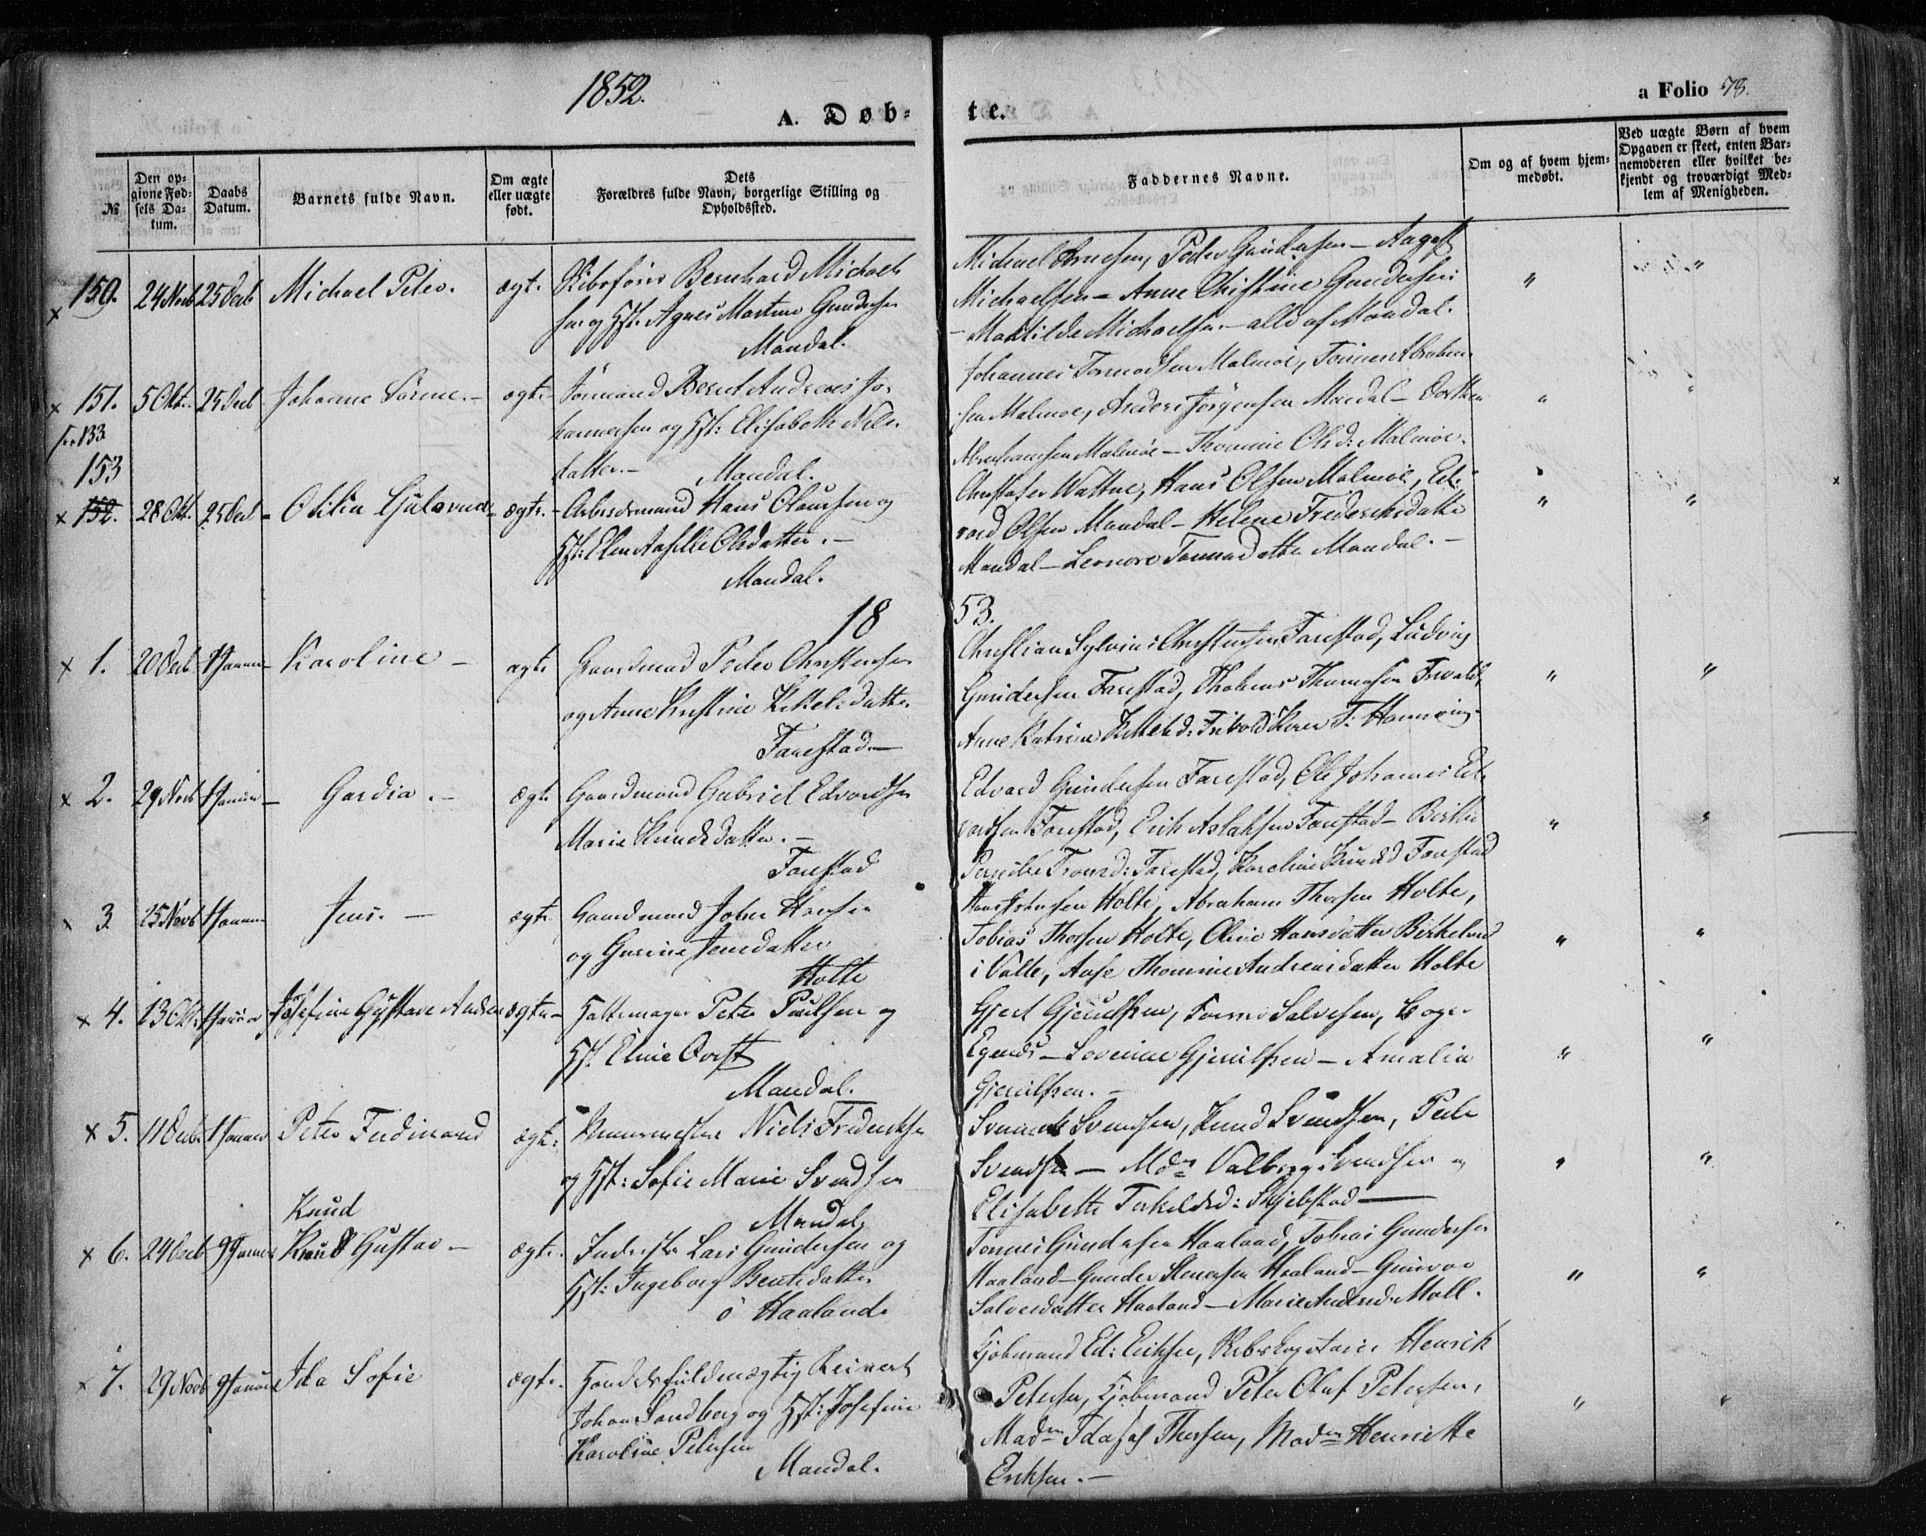 1852.
A. Døb-
te.
a Folio 78.
№
Den op-
givne Fød-
sels Da-
tum.
Daabs
Datum.
Barnets fulde Navn.
Om ægte
eller uægte
født.
Dets
Forældres fulde Navn, borgerlige Stilling og
Opholdssted.
Faddernes Navne.
Om og af hvem hjem-
medøbt.
Ved uægte Børn af hvem
Opgaven er skeet, enten Bar-
nemoderen eller hvilket be-
kjendt og troværdigt Med-
lem af Menigheden.
x 150. 24 Novb 25 Decb Michael Peter. ægt. Skibsfører Bernhard Michael-
sen og Hst. Agnes Martine Gundersen
Mandal.
Michael Arnesen, Peder Gundersen
Michaelsen - Anne Christine Gundersen
- Mathilde Michaelsen - alle af Mandal.
x 151. 5 Okt. 25 Decb Johanne Sørine. - ægte. Sømand Bernt Andreas Jo-
hannesen og Hst: Elisabeth Niels-
datter. - Mandal.
133
Johannes Tormodsen Malmøe,
sen Malmøe, Anders Jørgensen Mandal - Dorthea
Abrahamsen Malmøe - Thomine Olsd: Malmøe.
153
x 152. 28 Okt. 25 Decb - Otilia - ægte. - Arbeidsmand Hans Olaussen og
Hst: Elen Olsdatter. -
Mandal.
Christofer Wattne, Hans Olsen Malmøe, Ed-
vard Olsen Mandal - Helene Frederiksdatter
Mandal - Leonore Mandal. -
18
53.
x 1. 20 Decb 1 Januar - Karoline - ægte Gaardmand Peder Christensen
og Anne Kirstine Ketelsdatter
Farestad -
Christian Sylvius Christensen Farestad, Ludvig
Gundersen Farestad, Thomasen
Anne Katrine Ketelsd:
x 2. 29 Novb 1 Januar - Gardia. - ægt. Gaardmand Gabriel Edvardsen
Marie Knudsdatter. -
Farestad
Edvard Gundersen Farestad, Ole Johannes Ed-
vardsen Farestad, Erik Aslaksen Farestad - Birthe
Pernille Farestad, Karoline Knudsd Farestad
x 3. 25 Novb 1 Januar Jens. - ægte. Gaardmand John Hansen
og Gurine Jensdatter
Holte
Holte, Abraham Thorsen Holte,
Tobias Thorsen Holte, Oline Hansdatter Birkeland
i Valle, Aase Thomine Andreasdatter Holte
x 4. 13 Okt 1 Januar Josefine Gustave ægte - Hattemager Peter Paulsen og
Hst. Eline
Mandal.
Gjert Gjerulfsen, Tønnes Salvesen,
- Lovinne Gjerulfsen - Amalia
Gjerulfsen. -
x 5. 11 Decb 1 Januar Peter Ferdinand ægt: Murmester Niels Frederiksen
og Hst: Sofie Marie Svendsen
Mandal.
Svendsen, Knud Svendsen, Peder
Svendsen - Mdm Valborg Svendsen og
Elisabeth Terkelsd: Skjebstad -
Knud
x 6. 24 Decb 9 Januar Knud Gustav - ægte. Inderster Lars Gundersen og
Hst: Ingeborg Bentsdatter
ö Haaland.
Tønnes Gundersen Haaland, Tobias Gundersen
Haaland - Gunder Haaland - Gunvor
Salvesdatter Haaland - Marie Møll.
x 7. 29 Novb 9 Januar Ida Sofie ægte. Handelsfuldmægtig Reinert
Johan Sandberg og Hst: Josefine
Karoline Petersen
Mandal.
Kjøbmand Ed: Eriksen, Henrik
Petersen, Kjøbmand Peter Oluf Petersen,
Madm Ida Thorsen, Madm Henriette
Eriksen. -